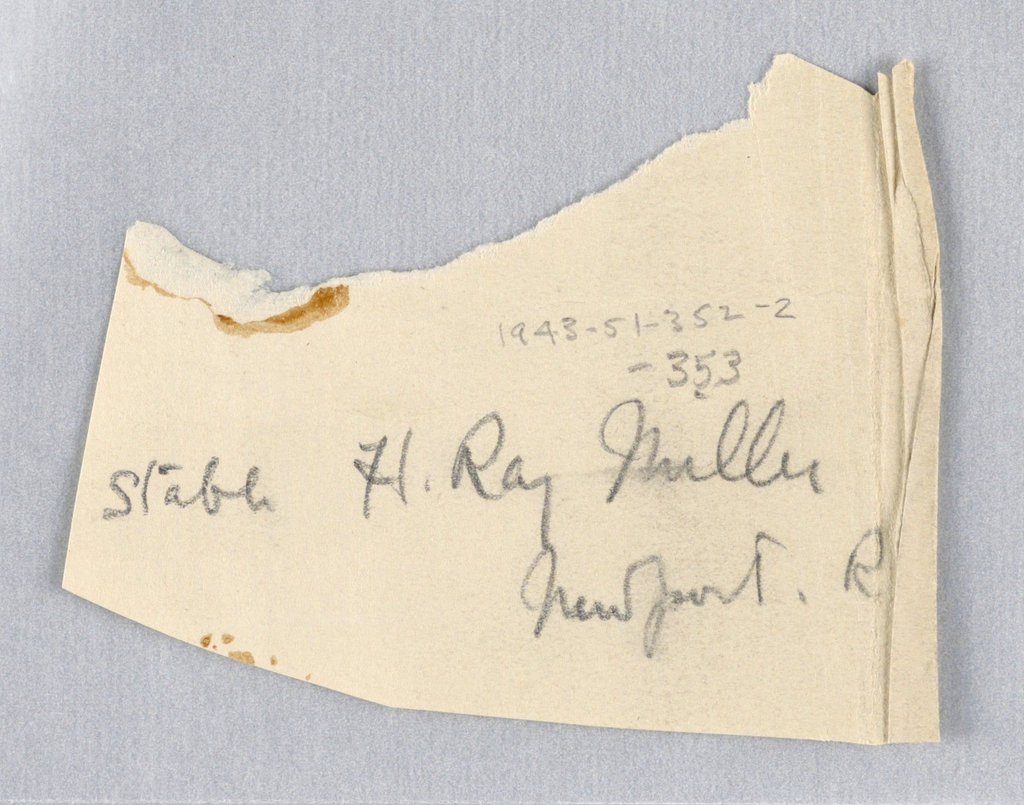 1943-51-352-2
-353
Stable H. Ray Miller
Newport. R